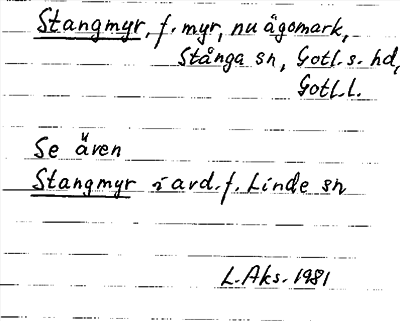 Stangmyr, f. myr, nu ägomark,
Stånga sn, Gotl. s. hd,
Gotl. l.
Se även
Stangmyr i avd. f. Linde sn
L. Aks. 1981